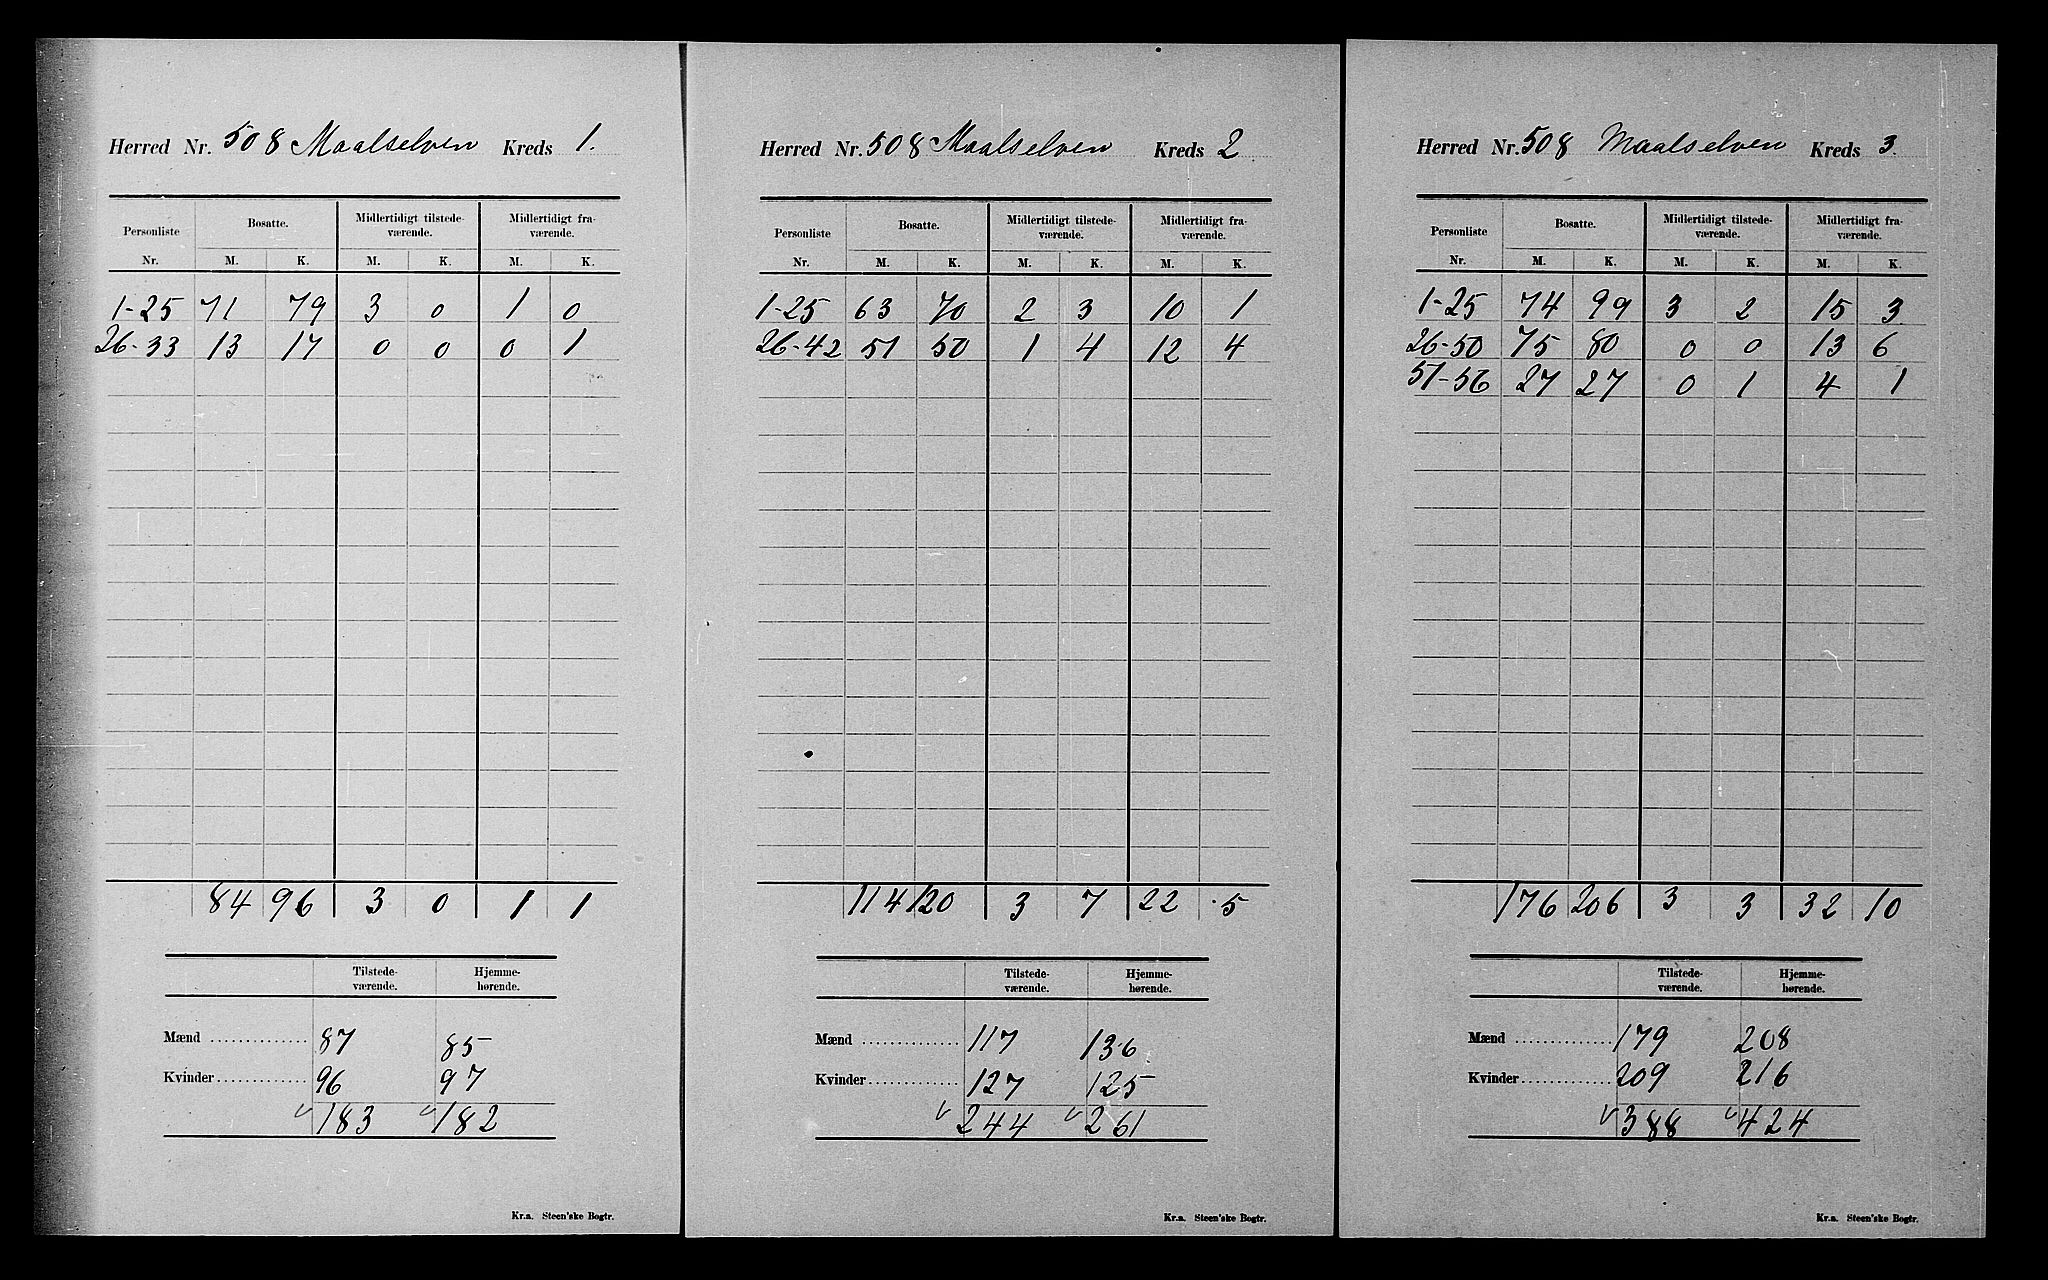 Herred Nr. 508 Maalselven Kreds 1.
Personliste Bosatte. Midlertidigt tilstede- Midlertidigt fra-
værende. værende.
Nr. M. K. M. K. M. K.
1-25 71 79 3 0 1 0
26-33 13 17 0 0 0 1
84 96 3 0 1 1
Tilstede- Hjemme-
værende. hørende.
Mænd .............. 87 85
Kvinder ............. 96 97
v 183 v 182
Kr.a. Steen'ske Bogtr.
Herred Nr. 508 Maalselven Kreds 2
Personliste Bosatte. Midlertidigt tilstede- Midlertidigt fra-
værende. værende.
Nr. M. K. M. K. M. K.
1-25 63 70 2 3 10 1
26-42 51 50 1 4 12 4
114 120 3 7 22 5
Tilstede- Hjemme-
værende. hørende.
Mænd .............. 117 136
Kvinder ............. 127 125
v 244 v 261
Kr.a. Steen'ske Bogtr.
Herred Nr. 508 Maalselven Kreds 3.
Personliste Bosatte. Midlertidigt tilstede- Midlertidigt fra-
værende. værende.
Nr. M. K. M. K. M. K.
1-25 74 99 3 2 15 3
26-50 75 80 0 0 13 6
51-56 27 27 0 1 4 1
176 206 3 3 32 10
Tilstede- Hjemme-
værende. hørende.
Mænd .............. 179 208
Kvinder ............. 209 216
v 388 v 424
Kr.a. Steen'ske Bogtr.